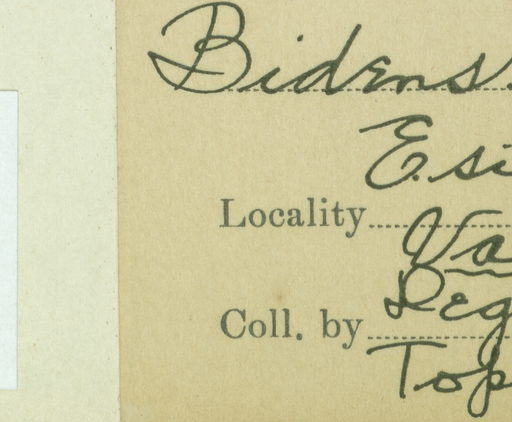 Bidens
E. si
Locality Va
Reg
Coll. by
Top